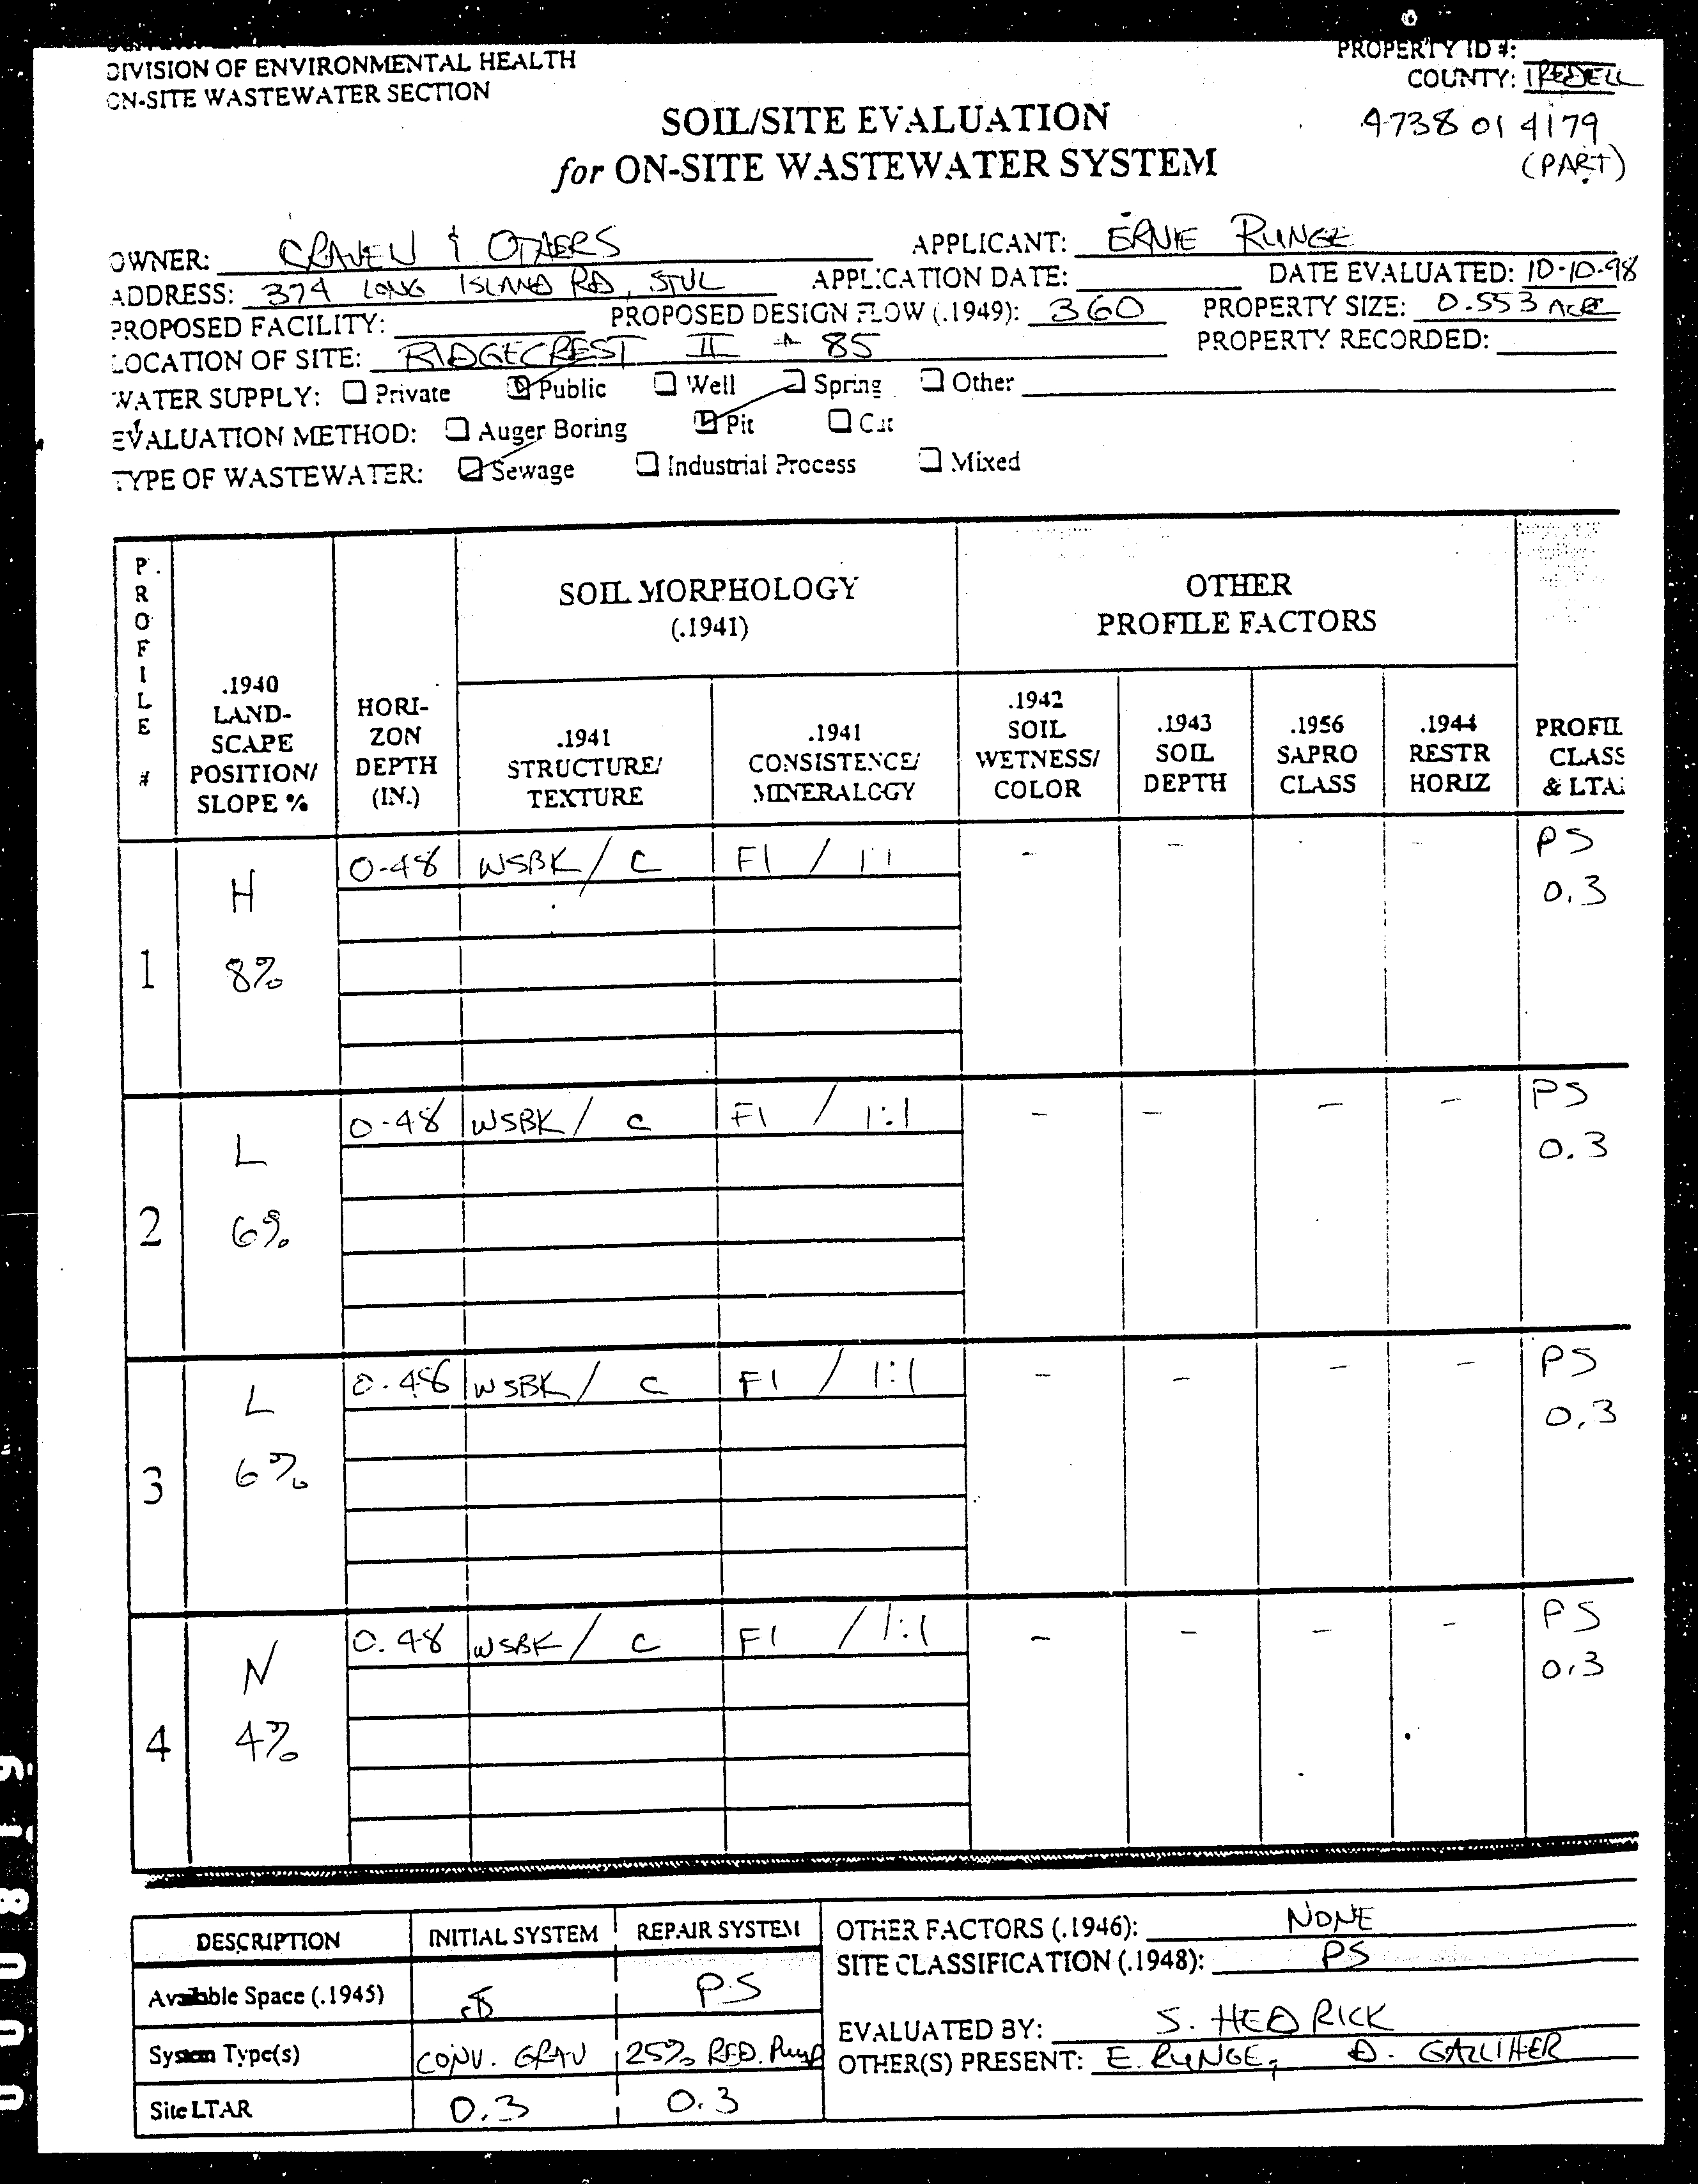 DIVISION OF ENVIRONMENTAL HEALTH
ON-SITE WASTEWATER SECTION
PROPERTY ID #:
COUNTY: IREDELL
4738 01 4179
(PART)
SOIL/SITE EVALUATION
for ON-SITE WASTEWATER SYSTEM
OWNER: CRAVEN & OTHERS APPLICANT: ERNIE RUNGE
ADDRESS: 374 LONG ISLAND RD, STVL APPLICATION DATE: DATE EVALUATED: 10-10-98
PROPOSED FACILITY: PROPOSED DESIGN FLOW (.1949): 360 PROPERTY SIZE: 0.553 ACRE
LOCATION OF SITE: RIDGECREST II # 85 PROPERTY RECORDED:
WATER SUPPLY: Private Public Well Spring Other
EVALUATION METHOD: Auger Boring Pit Cut
TYPE OF WASTEWATER: Sewage Industrial Process Mixed
PROFILE #
.1940 LAND-SCAPE POSITION/ SLOPE %
HORI-ZON DEPTH (IN.)
SOIL MORPHOLOGY
(.1941)
OTHER
PROFILE FACTORS
.1941 STRUCTURE/ TEXTURE
.1941 CONSISTENCE/ MINERALOGY
.1942 SOIL WETNESS/ COLOR
.1943 SOIL DEPTH
.1956 SAPRO CLASS
.1944 RESTR HORIZ
PROFIL CLASS & LTA
1 H 0-48 WSBK / C FI / 1:1 - - - PS
8% 0.3
2 L 0-48 WSBK / C FI / 1:1 - - - - PS
6% 0.3
3 L 0-48 WSBK / C FI / 1:1 - - - - PS
6% 0.3
4 N 0.48 WSBK / C FI / 1:1 - - - - PS
4% 0.3
DESCRIPTION INITIAL SYSTEM REPAIR SYSTEM
Available Space (.1945) PS
System Type(s) CONV. GRAV 25% RED. Pump
Site LTAR 0.3 0.3
OTHER FACTORS (.1946): NONE
SITE CLASSIFICATION (.1948): PS
EVALUATED BY: S. HEDRICK
OTHER(S) PRESENT: E. RUNGE, D. GALLIHER